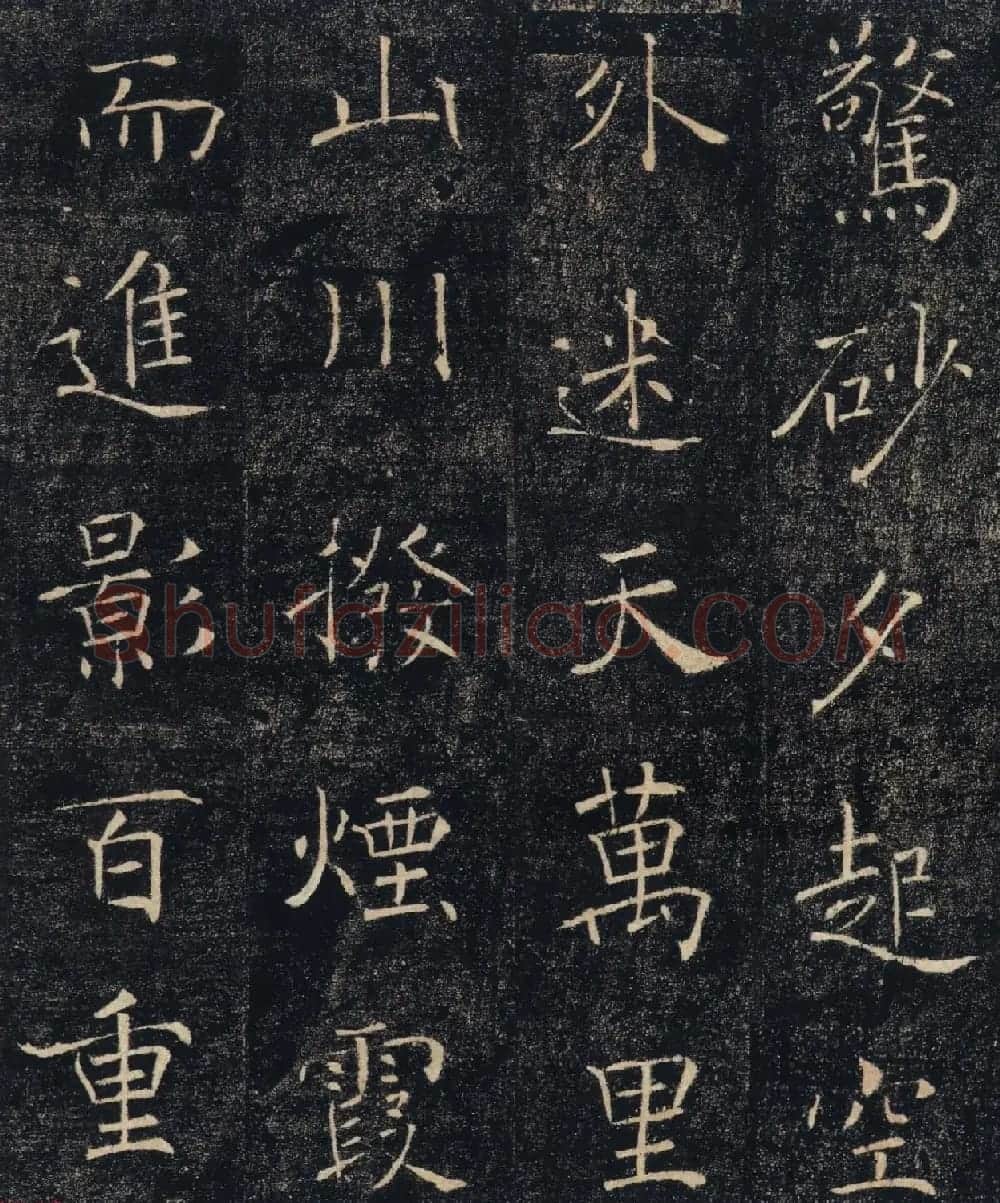 驚砂夕起空
外迷天萬里
山川撥煙霞
而進影百重
Shufaziliao.COM